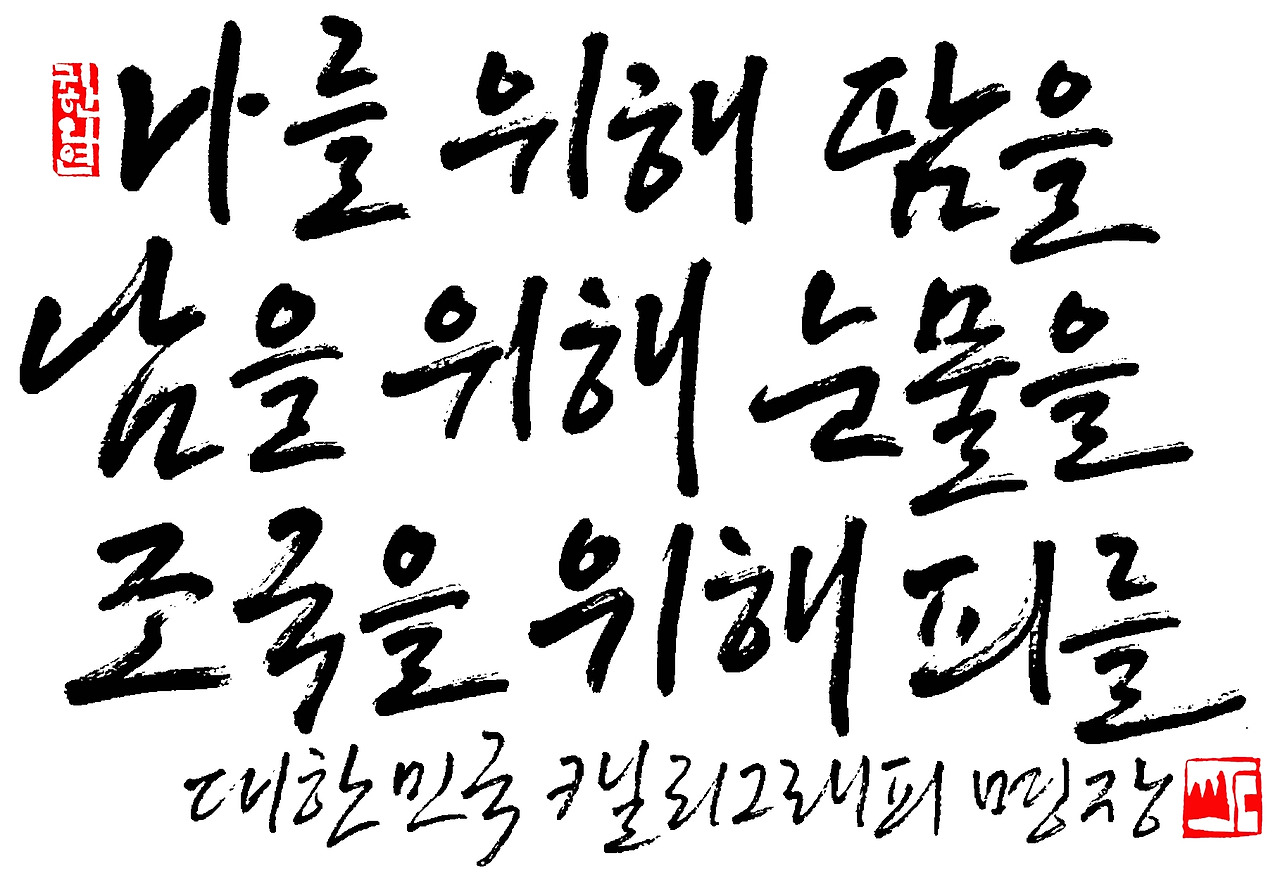 나를 위해 땀을
남을 위해 눈물을
조국을 위해 피를
대한민국 캘리그래피 명장